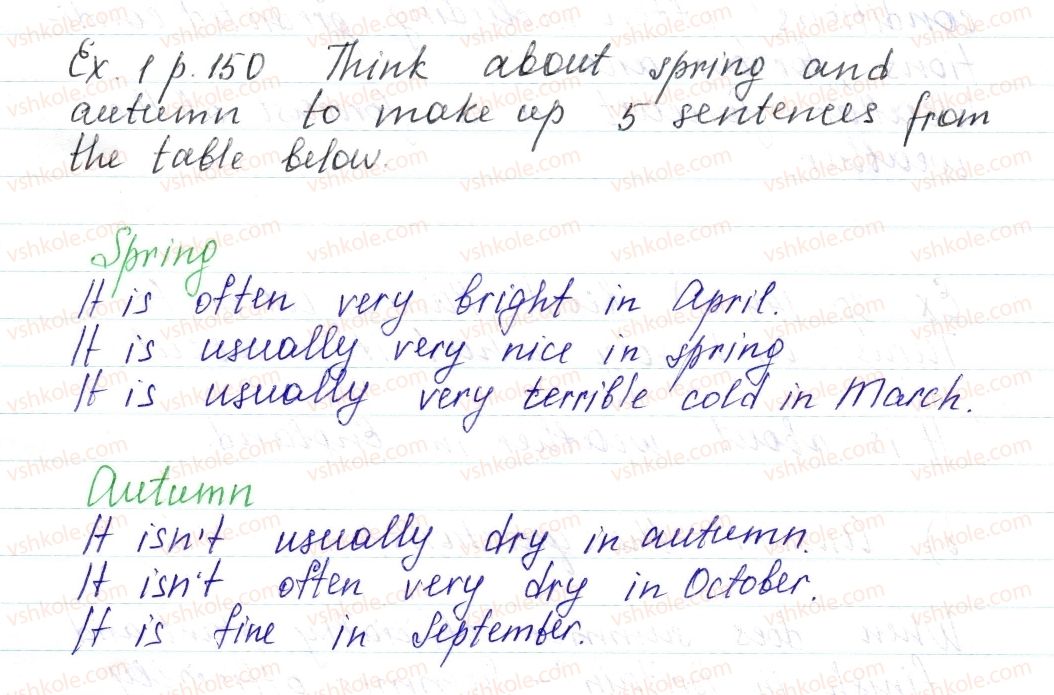 Ex. 1 p. 150 Think about spring and
autumn to make up 5 sentences from
the table below.
Spring
It is often very bright in April.
It is usually very nice in spring
It is usually very terrible cold in March.
Autumn
It isn't usually dry in autumn.
It isn't often very dry in October.
It is fine in September.
vshkole.com